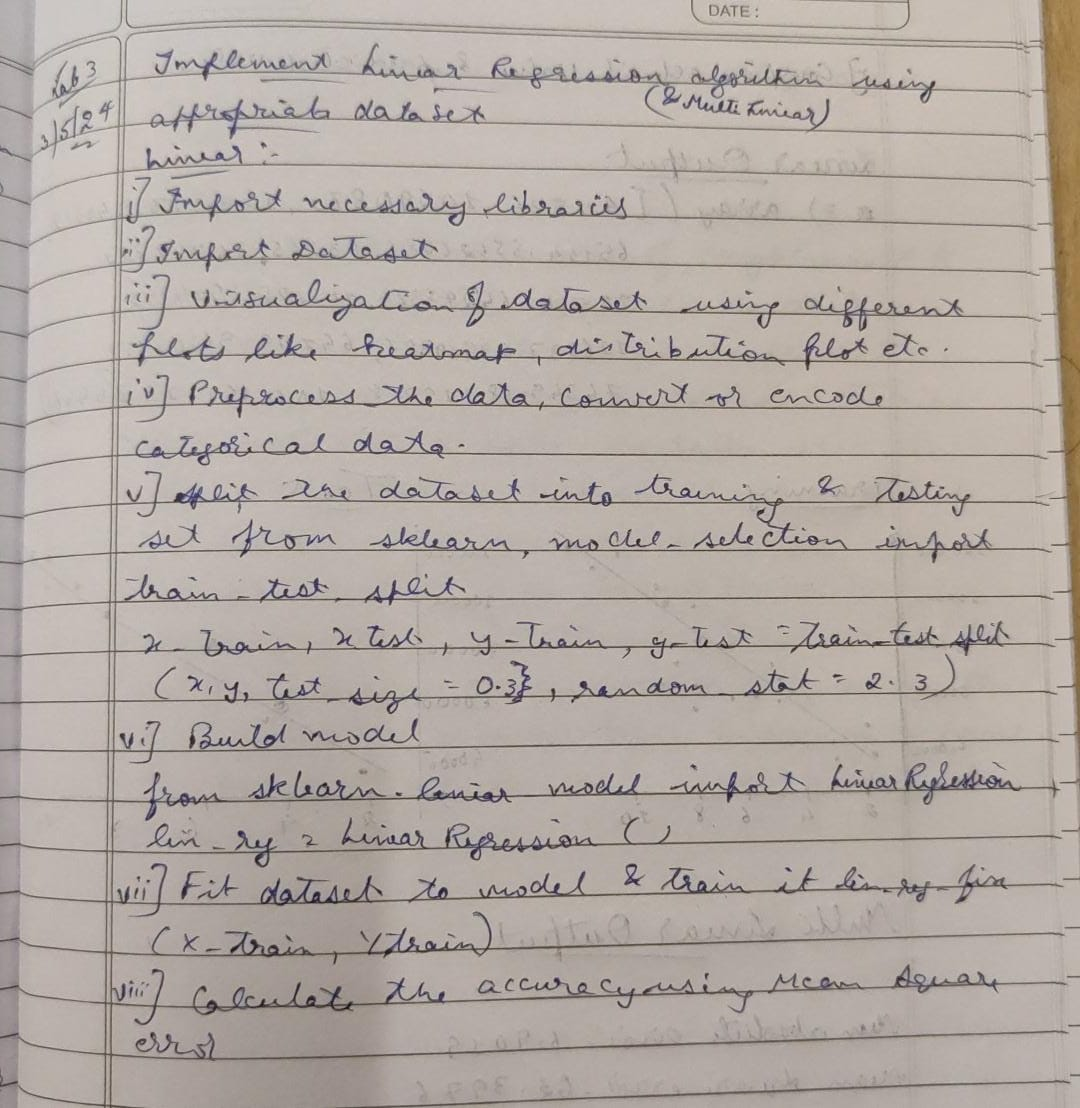 DATE :
Lab 3
3/5/24
Implement Linear Regression algorithm using
(& Multi Linear)
appropriate dataset
Linear :-
i] Import necessary libraries
ii] Import Dataset
iii] Visualization of dataset using different
plots like heatmap, distribution plot etc.
iv] Preprocess the data, convert or encode
categorical data.
v] split the dataset into training & Testing
set from sklearn, model-selection import
train-test-split
x-Train, x test, y-Train, y-Test = Train-test split
(x, y, test size = 0.3}, random stat = 2.3)
vi] Build model
from sklearn. linear model import Linear Regression
lin-reg = Linear Regression ()
vii] Fit dataset to model & train it lin-reg-fix
(X-Train, Ytrain)
viii] Calculate the accuracy using Mean Square
error